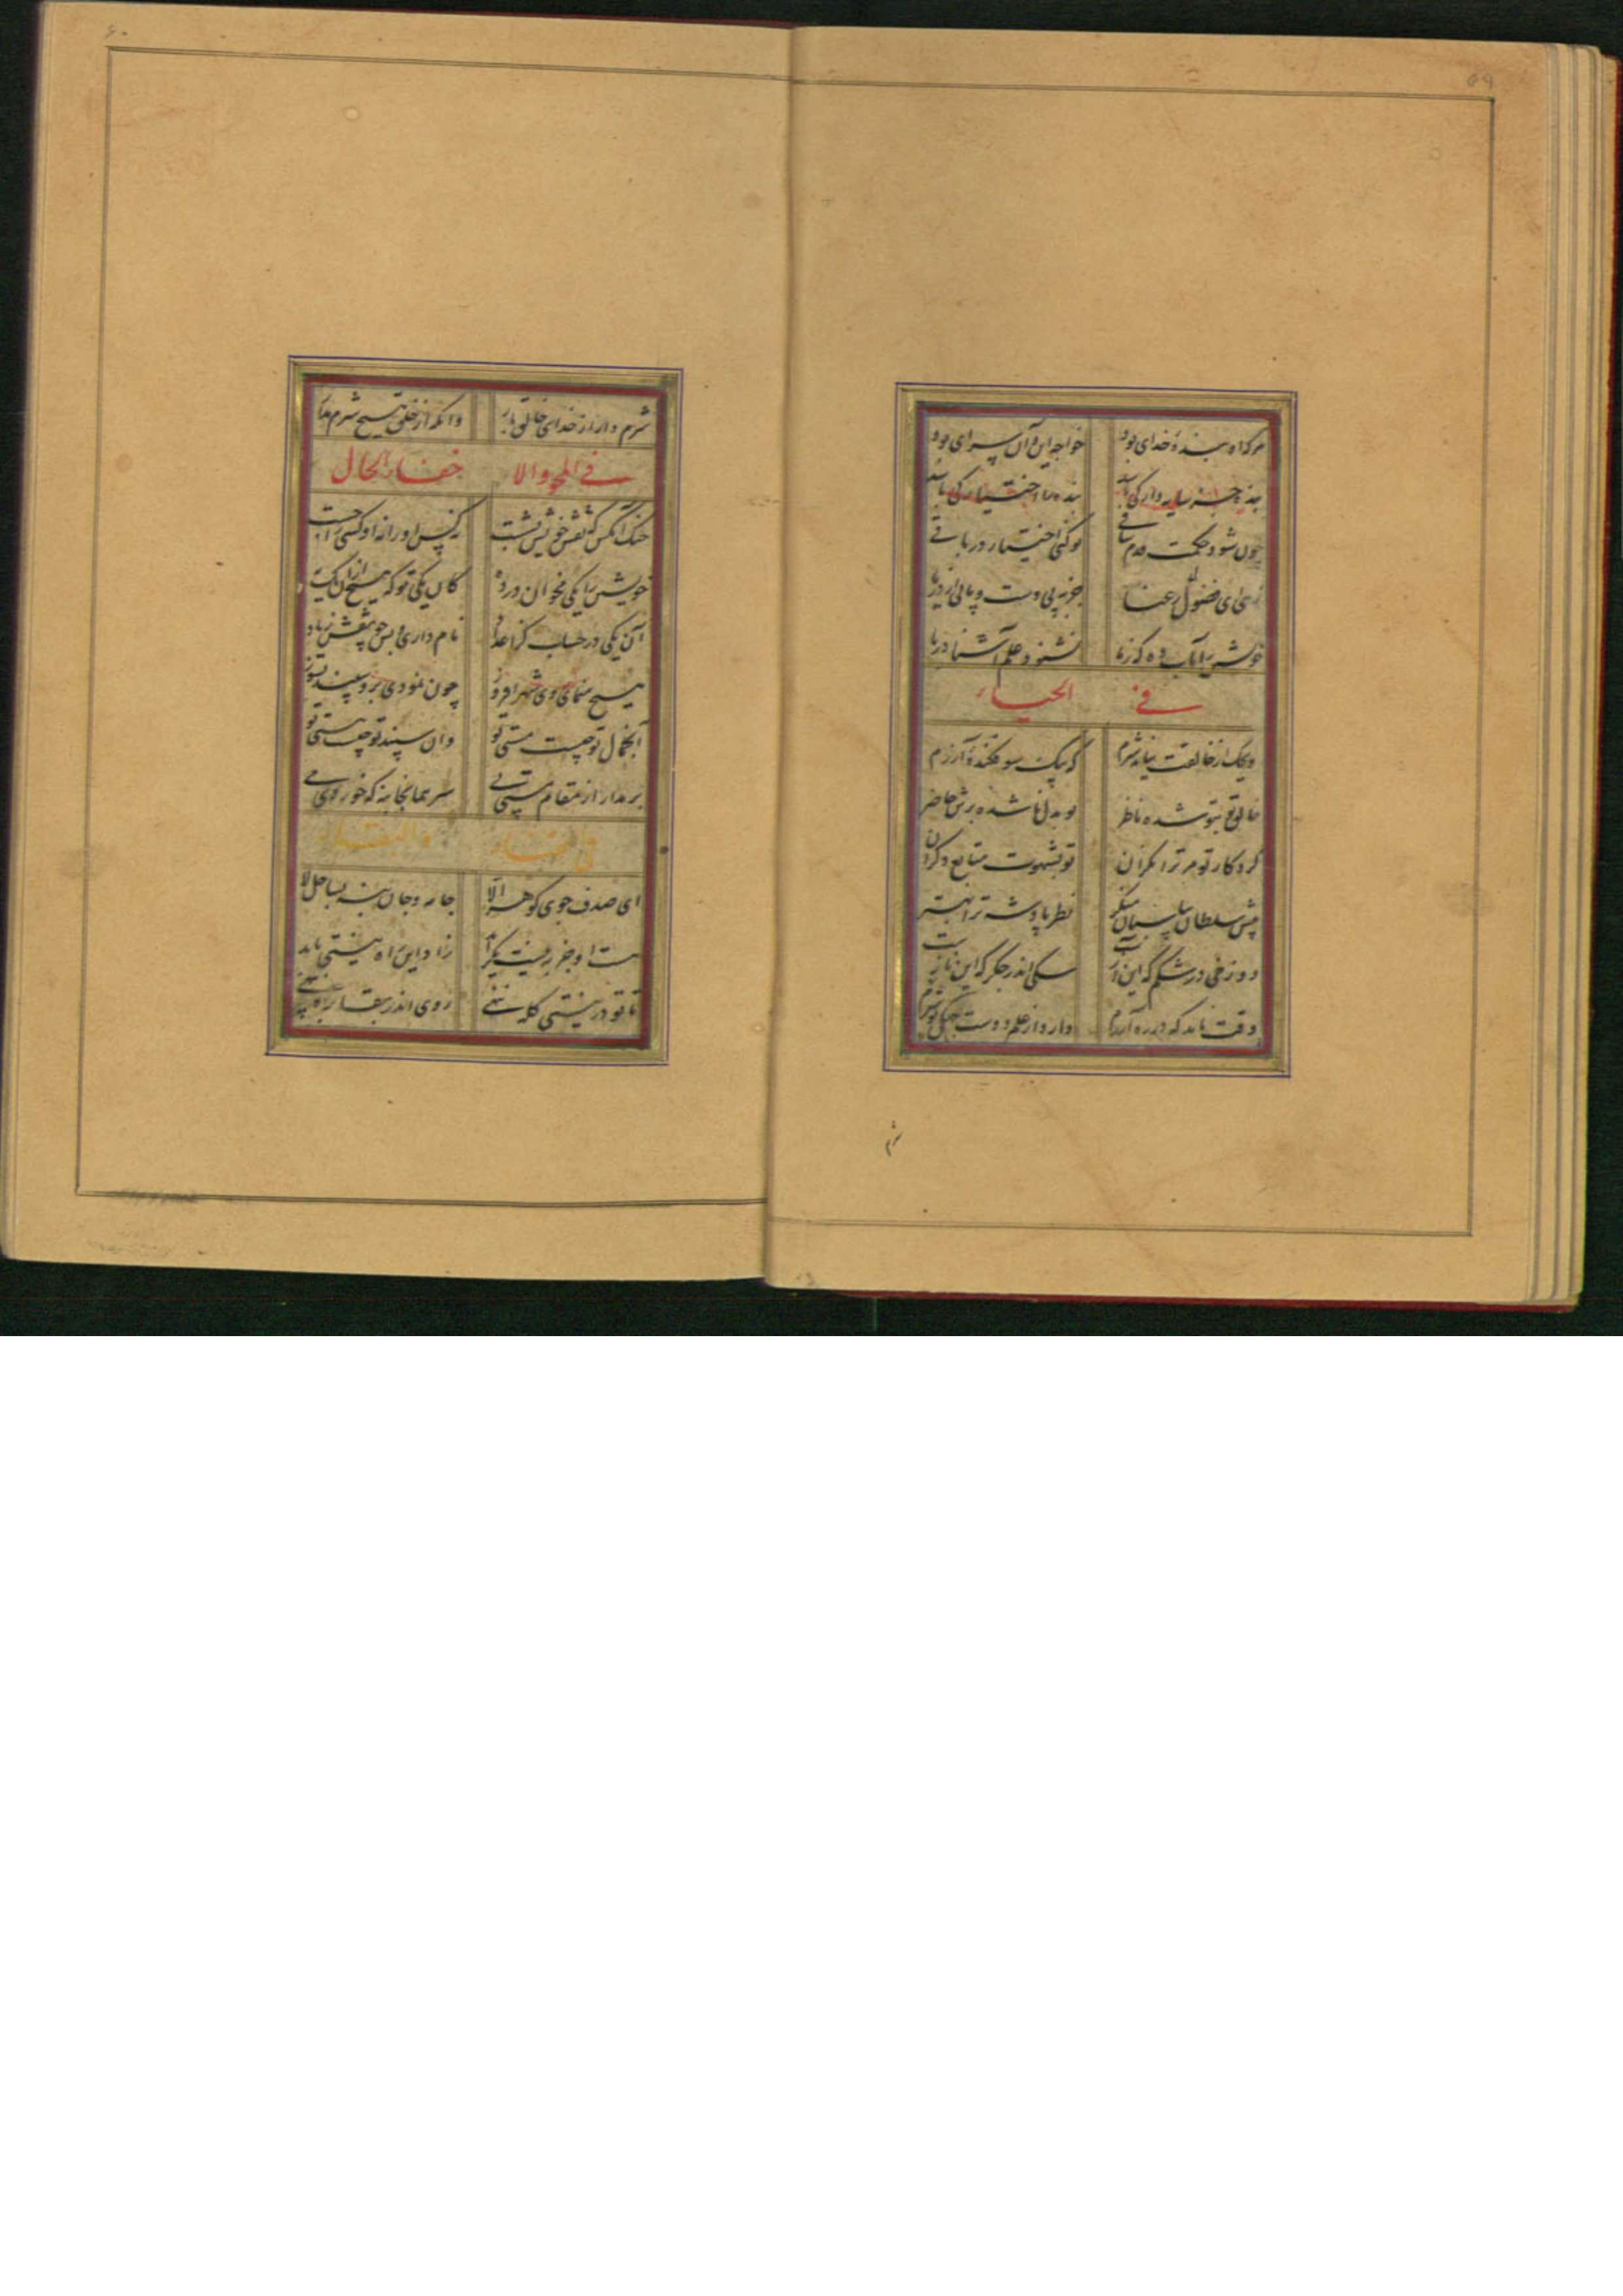 ۵۹
هرکه او بنده خدای بود خواجه این و آن سرای بود
بنده جز سایه وار کی باشد بنده با اختیار کی باشد
چون شود حکمت قدم ساقی تو کنی اختیار در باقی
ای فضول رعنا جز به بی دست و پایی از دریا
خویشتن را بآب ده که زیا نشنود علم آشنا دریا
فی الحیاء
ویحک از خالقت نیاید شرم که بیک سو فکنده آزرم
خالق تو بتو شده ناظر تو بدل ناشده برش حاضر
کردکار تو مر ترا نگران تو بشهوت متابع دگران
پیش سلطان بپاسبان منگر نظر پادشه ترا بهتر
دوزخی در شکم که این آزست سگی اندر جگر که این نازست
وقت ناید که در ره آزرم دارد از علم دوست جهل تو شرم
شرم
۶۰
شرم دار از خدای خالق بار وانکه از خلق هیچ شرم مدار
فی المحو والا خفاء الحال
خنک آنکس که نقش خویش بشست نه کس او را نه او کسی را جست
خویشتن را یکی مخوان در ده کان یکی تو که هیچ ازان یک به
آن یکی در حساب گر اعداد نام داری و بس چو نقش زیاد
هیچ منمای روی شهر افروز چون نمودی برو سپند بسوز
آن جمال تو چیست مستی تو وان سپند تو چیست هستی تو
برمدار از مقام مستی پی سر همانجا بنه که خوردی می
فی الفناء والبقاء
ای صدف جوی گوهر الا جامه و جان بنه بساحل لا
هست او جز به نیست نگراید زاد این راه نیستی باید
تا تو در نیستی کله ننهی روی اندر بقا براه نهی